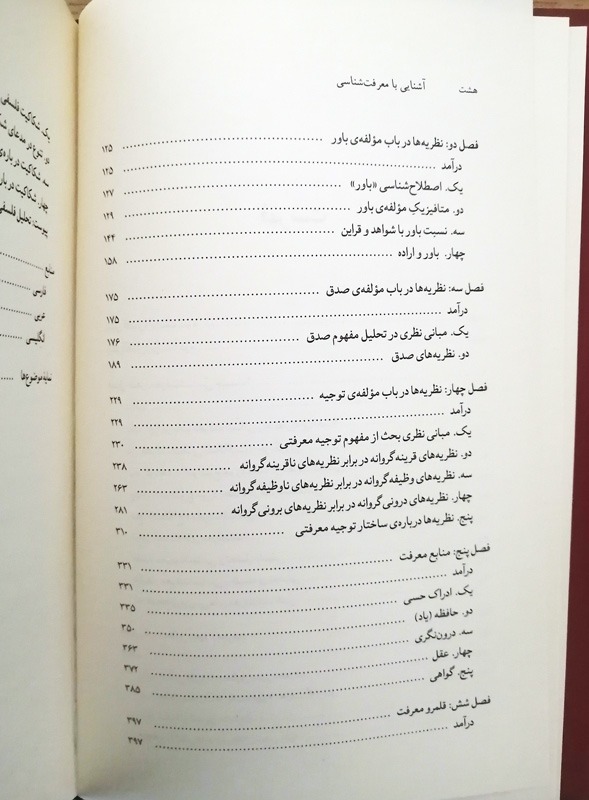 هشت آشنایی با معرفت‌شناسی
فصل دو: نظریه‌ها در باب مؤلفه‌ی باور ۱۲۵
درآمد ۱۲۵
یک. اصطلاح‌شناسی «باور» ۱۲۷
دو. متافیزیکِ مؤلفه‌ی باور ۱۲۹
سه. نسبت باور با شواهد و قراین ۱۴۴
چهار. باور و اراده ۱۵۸
فصل سه: نظریه‌ها در باب مؤلفه‌ی صدق ۱۷۵
درآمد ۱۷۵
یک. مبانی نظری در تحلیل مفهوم صدق ۱۷۶
دو. نظریه‌های صدق ۱۸۹
فصل چهار: نظریه‌ها در باب مؤلفه‌ی توجیه ۲۲۹
درآمد ۲۲۹
یک. مبانی نظری بحث از مفهوم توجیه معرفتی ۲۳۰
دو. نظریه‌های قرینه‌گروانه در برابر نظریه‌های ناقرینه‌گروانه ۲۳۸
سه. نظریه‌های وظیفه‌گروانه در برابر نظریه‌های ناوظیفه‌گروانه ۲۶۳
چهار. نظریه‌های درونی‌گروانه در برابر نظریه‌های برونی‌گروانه ۲۸۱
پنج. نظریه‌ها درباره‌ی ساختار توجیه معرفتی ۳۱۰
فصل پنج: منابع معرفت ۳۳۱
درآمد ۳۳۱
یک. ادراک حسی ۳۳۵
دو. حافظه (یاد) ۳۵۰
سه. درون‌نگری ۳۶۳
چهار. عقل ۳۷۲
پنج. گواهی ۳۸۵
فصل شش: قلمرو معرفت ۳۹۷
درآمد ۳۹۷
یک. شکاکیت فلسفی
دو. تنوع در مدعای
سه. شکاکیت در باره‌ی
چهار. شکاکیت در
پیوست: تحلیل فلسفی
منابع
فارسی
عربی
انگلیسی
نمایه موضوع‌ها